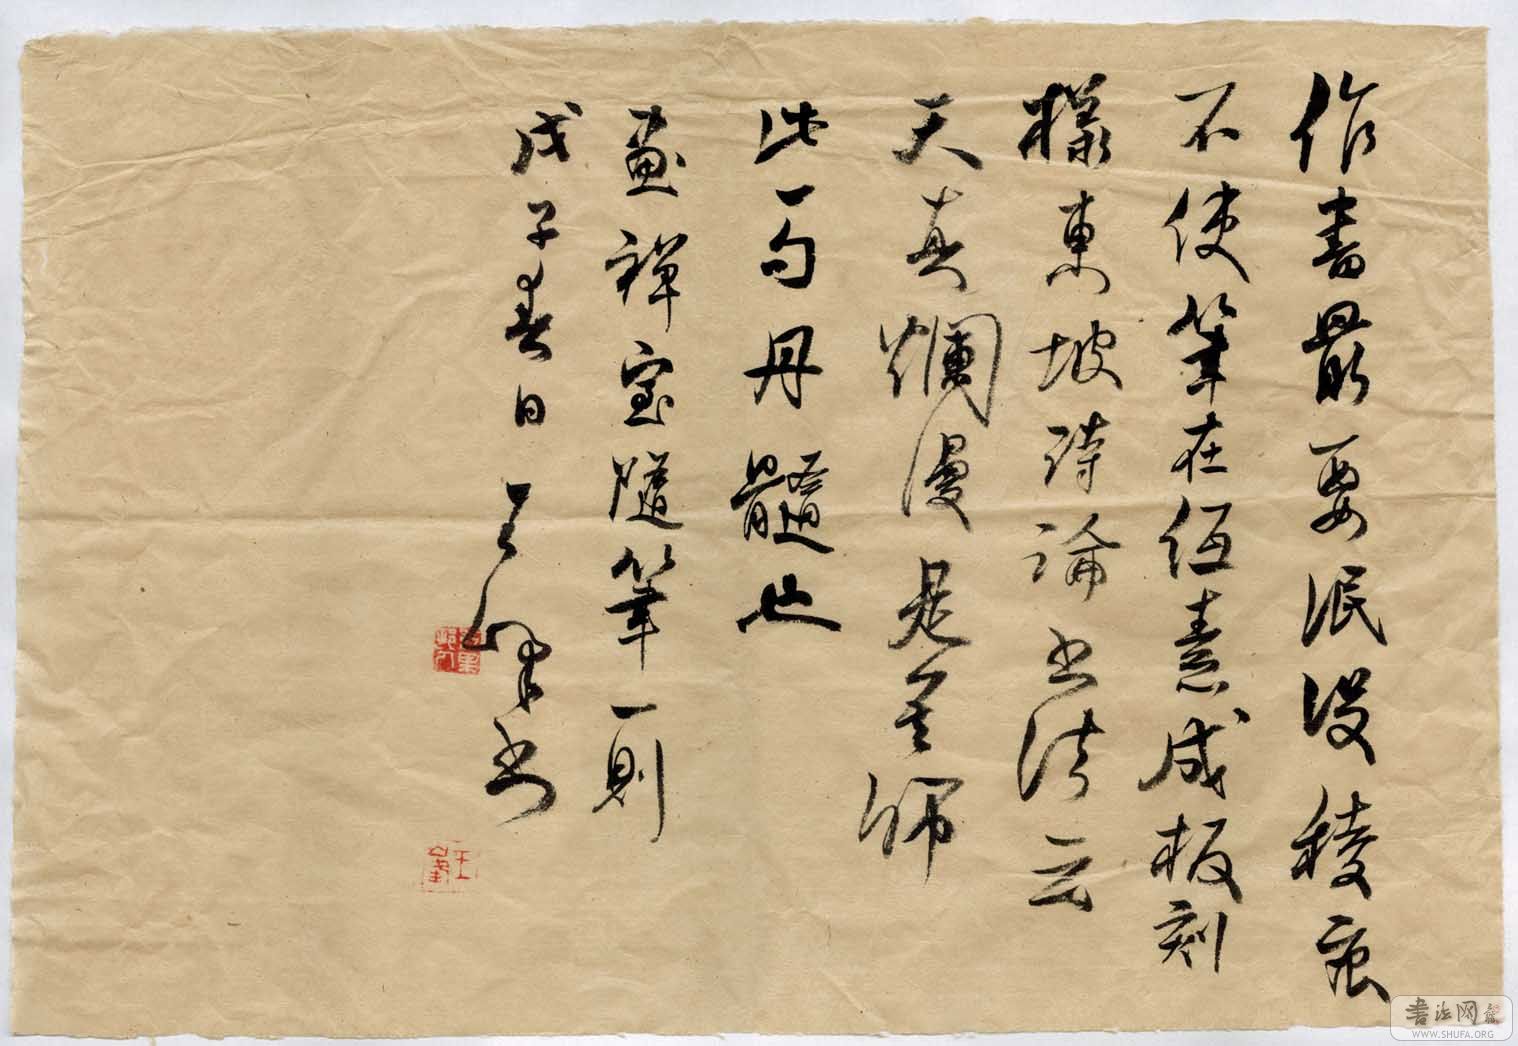 作書最要泯没稜痕
不使筆在紙素成板刻
樣東坡詩論書法云
天真爛漫是吾師
此一句丹髓也
畫禪室隨筆一則
戊子春日王峰書
王峰
書法网
WWW.SHUFA.ORG